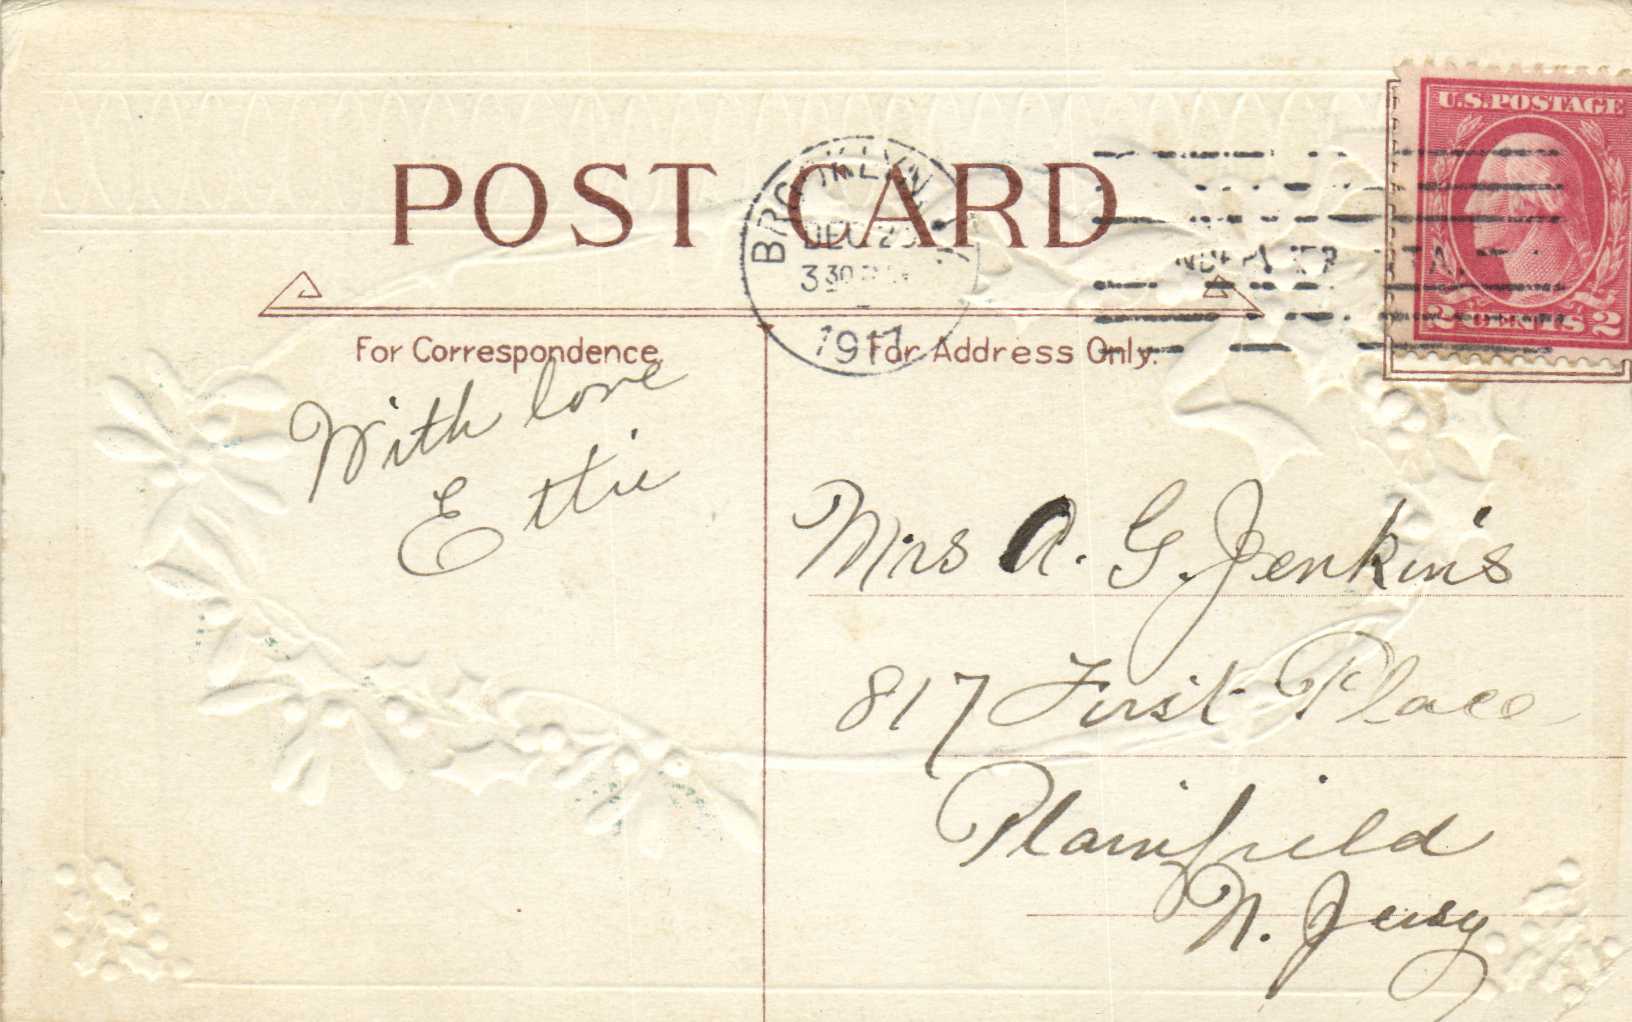 U.S. POSTAGE
POST CARD
BROOKLYN
DEC
3 30
1917
2 CENTS 2
For Correspondence.
For Address Only.
With love
Ettie
Mrs A. G. Jenkins
817 First Place
Plainfield
N. Jersy